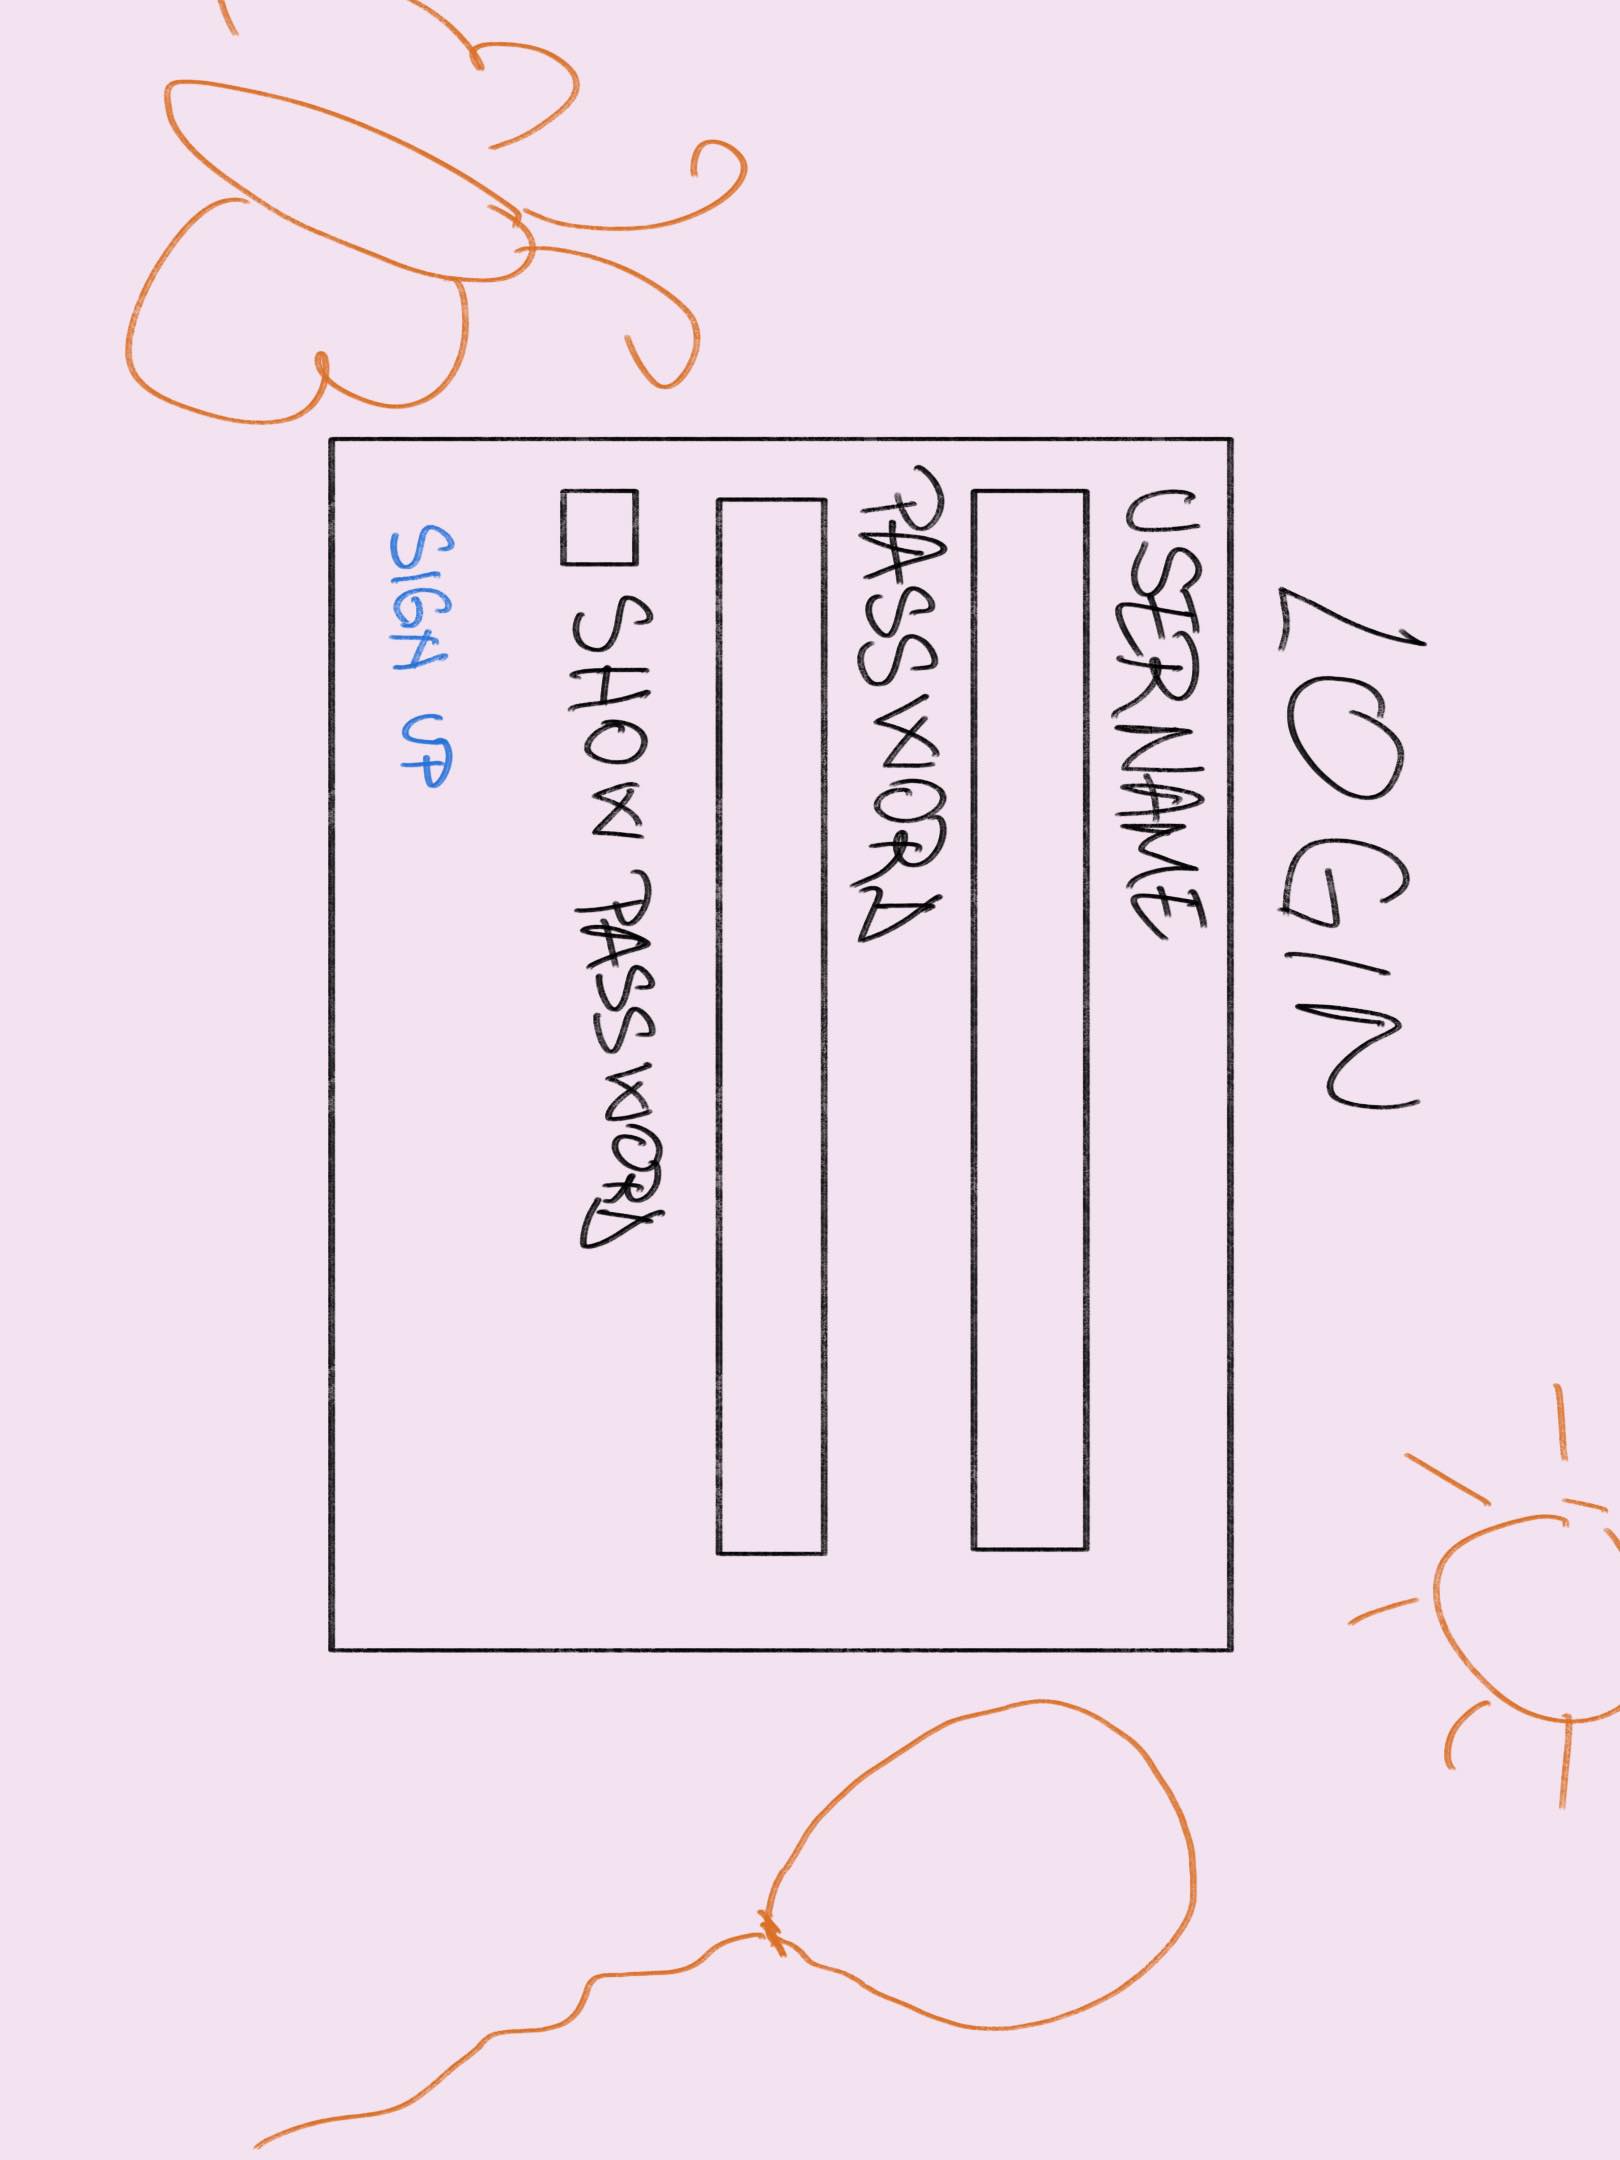 LOGIN
USERNAME
PASSWORD
SHOW PASSWORD
SIGN UP